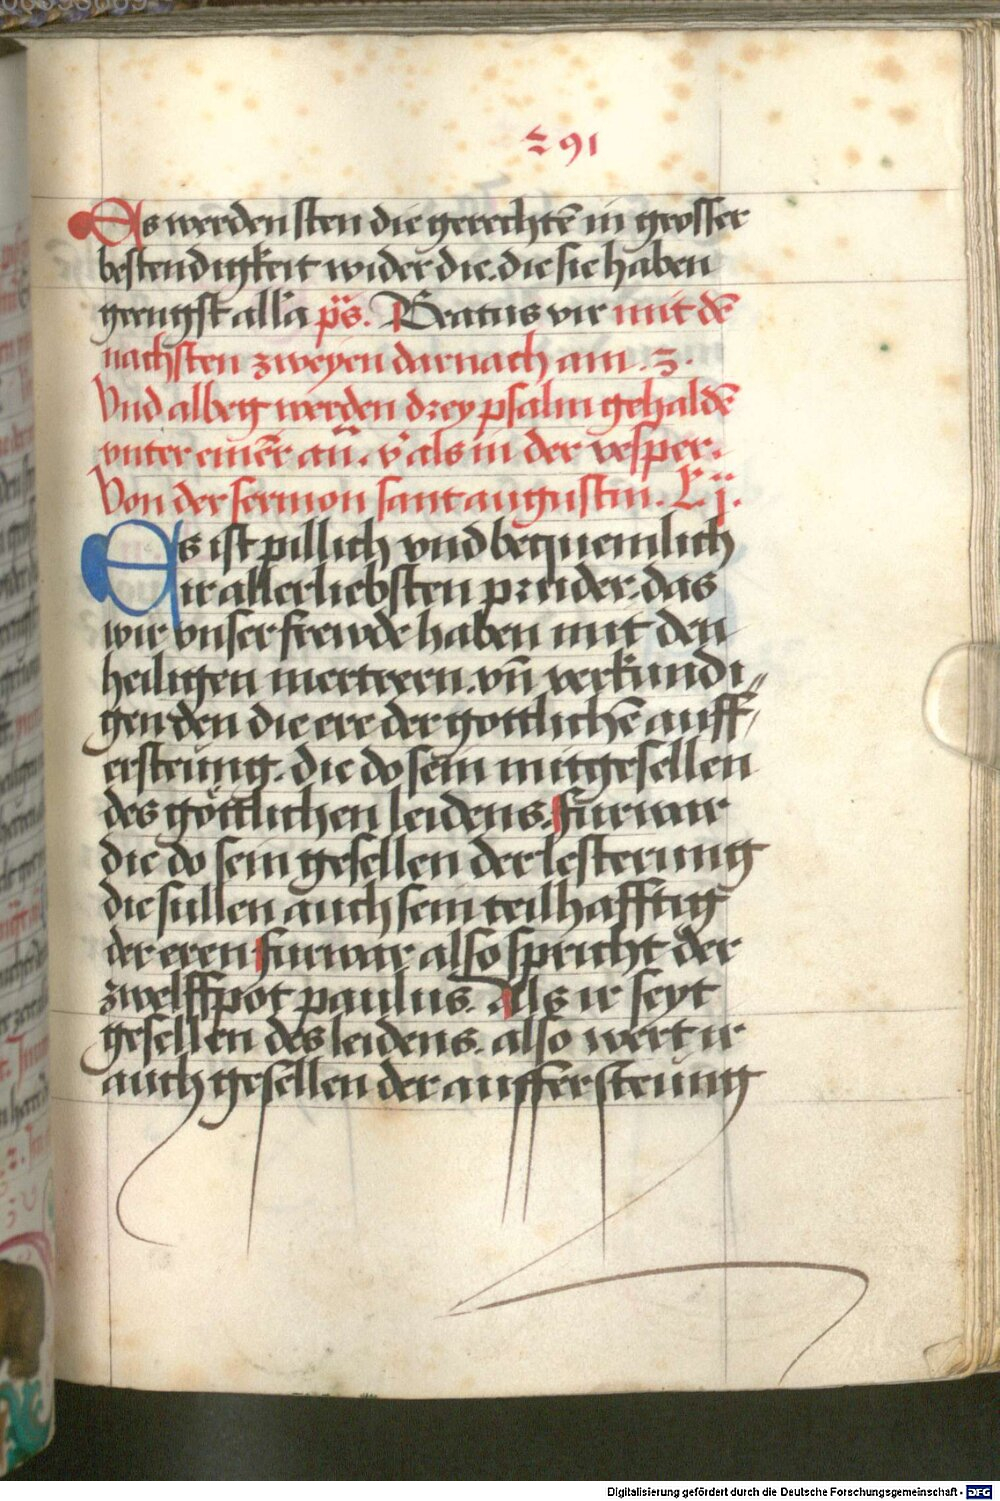 291
Es werden sten die gerechtē in grosser
bestendigkeit wider die. die sie haben
geengst all'a ps. Beatus vir mit dē
nachsten zweyen darnach am .3.
Vnd albeg werden drey psalm gehaldē
vnter einer an̄. v' als in der vesper.
Von der sermon sant augustin. L' j.
Es ist pillich vnd bequemlich
ir allerliebsten pruder. das
wir vnser frewde haben mit den
heiligen mertrern. vn̄ verkundi〃
gen den die ere der gottlichē auff-
ersteung. die do sein mitgesellen
des göttlichen leidens. furwar
die do sein gesellen der lesterung
die sullen auch sein teilhafftig
der eren furwar also spricht der
zwelffpot paulus. Als ir seyt
gesellen des leidens. also wert ir
auch gesellen der auffersteung
Digitalisierung gefördert durch die Deutsche Forschungsgemeinschaft - DFG